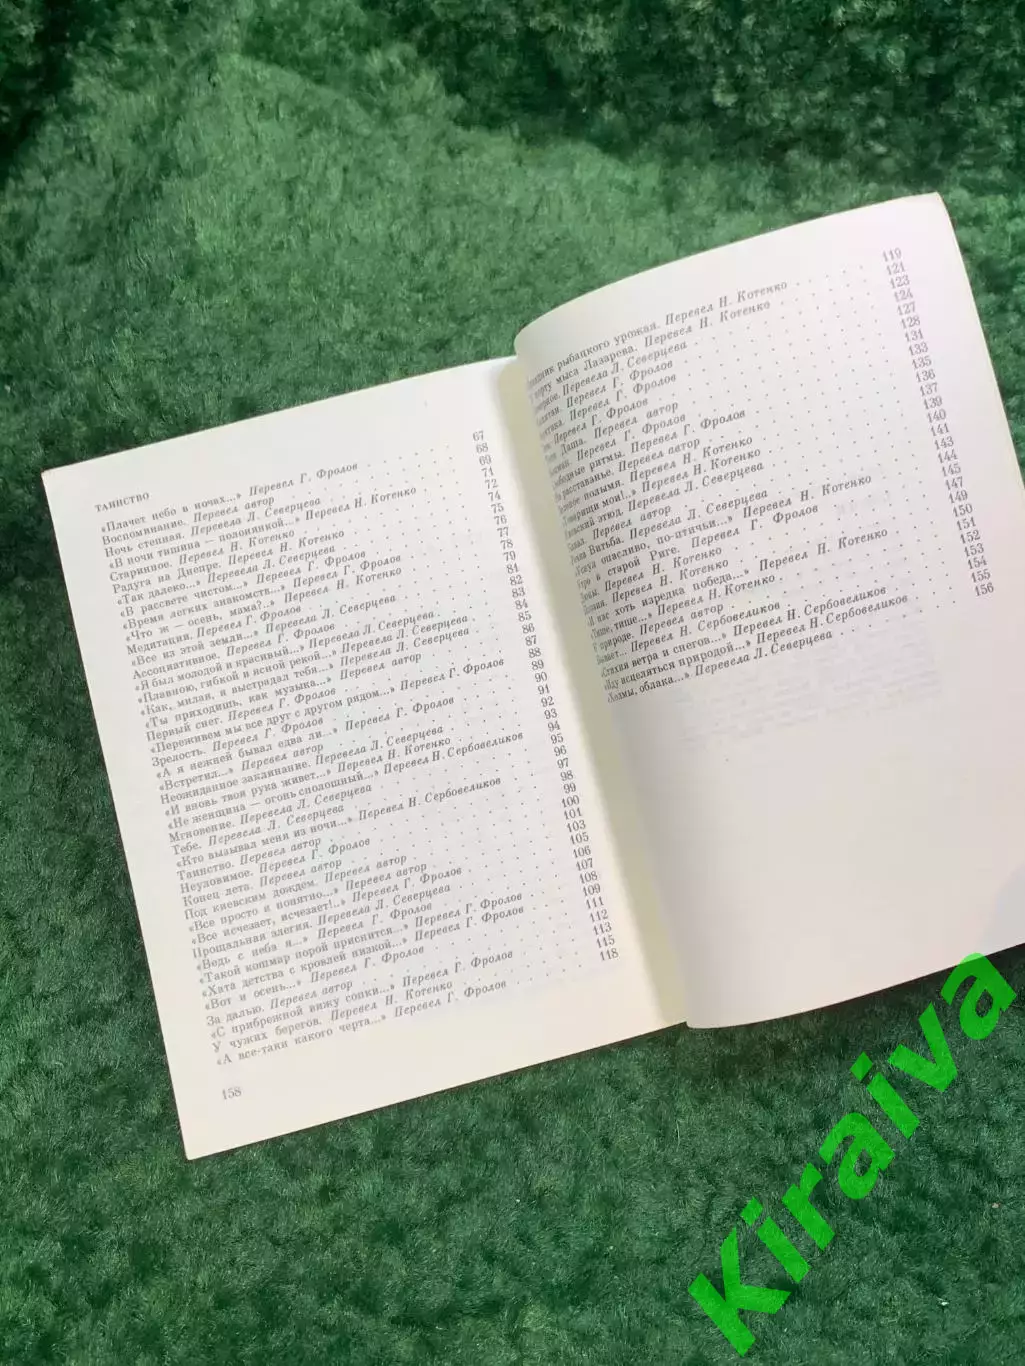 ТАИНСТВО
«Плачет небо в ночах...» Перевел Г. Фролов 67
Воспоминание. Перевел автор 68
Ночь степная. Перевела Л. Северцева 69
«В ночи тишина — полонянкой...» Перевел Н. Котенко 71
Старинное. Перевел Н. Котенко 72
Радуга на Днепре. Перевел Н. Котенко 74
«Так далеко...» Перевела Л. Северцева 75
«В рассвете чистом...» Перевел Г. Фролов 76
«Время легких знакомств...» Перевел Г. Фролов 77
«Что ж — осень, мама?..» Перевел Н. Котенко 78
Медитации. Перевел Г. Фролов 79
«Все из этой земли...» Перевела Л. Северцева 81
Ассоциативное. Перевел Г. Фролов 82
«Я был молодой и красивый...» Перевела Л. Северцева 83
«Плавною, гибкой и ясной рекой...» Перевела Л. Северцева 84
«Как, милая, я выстрадал тебя...» Перевела Л. Северцева 85
«Ты приходишь, как музыка...» Перевел автор 86
Первый снег. Перевел Г. Фролов 87
«Переживем мы все друг с другом рядом...» Перевел Г. Фролов 88
Зрелость. Перевел Г. Фролов 89
«А я нежней бывал едва ли...» Перевел Г. Фролов 90
«Встретил...» Перевел автор 91
Неожиданное заклинание. Перевела Л. Северцева 92
«И вновь твоя рука живет...» Перевел Н. Котенко 93
«Не женщина — огонь сполошный...» Перевел Н. Сербовеликов 94
Мгновение. Перевела Л. Северцева 95
Тебе. Перевела Л. Северцева 96
«Кто вызывал меня из ночи...» Перевел Н. Сербовеликов 97
Таинство. Перевел автор 98
Неуловимое. Перевел Г. Фролов 99
Конец лета. Перевел автор 100
Под киевским дождем. Перевел автор 101
«Все просто и понятно...» Перевел автор 103
«Все исчезает, исчезает!..» Перевел Г. Фролов 105
Прощальная элегия. Перевела Л. Северцева 106
«Ведь с неба я...» Перевел Г. Фролов 107
«Такой кошмар порой приснится...» Перевел Г. Фролов 108
«Хата детства с кровлей низкой...» Перевел Г. Фролов 109
«Вот и осень...» Перевел Г. Фролов 111
За далью. Перевел автор 112
«С прибрежной вижу сопки...» Перевел Г. Фролов 113
У чужих берегов. Перевел Н. Котенко 115
«А все-таки какого черта...» Перевел Г. Фролов 118
158
рыбацкого урожая. Перевел Н. Котенко 119
мыса Лазарева. Перевел Н. Котенко 121
Перевела Л. Северцева 123
Перевел Г. Фролов 124
Перевел Г. Фролов 127
Перевел Г. Фролов 128
Даша. Перевел автор 131
Перевел Г. Фролов 133
ритмы. Перевел Г. Фролов 135
расставанье. Перевел автор 136
полымя. Перевел Н. Котенко 137
мои!..» Перевел Н. Котенко 139
этюд. Перевела Л. Северцева 140
Перевел автор 141
Витьба. Перевела Л. Северцева 143
опасливо, по-птичьи...» Перевел Н. Котенко 144
в старой Риге. Перевел Г. Фролов 145
Перевел Н. Котенко 147
Перевел Н. Котенко 149
нас хоть изредка победа...» Перевел Н. Котенко 150
тише...» Перевел Н. Котенко 151
природе. Перевел автор 152
Перевел Н. Сербовеликов 153
ветра и снегов...» Перевел Н. Сербовеликов 154
исцеляться природой...» Перевел Н. Сербовеликов 155
облака...» Перевела Л. Северцева 156
Kiraiva